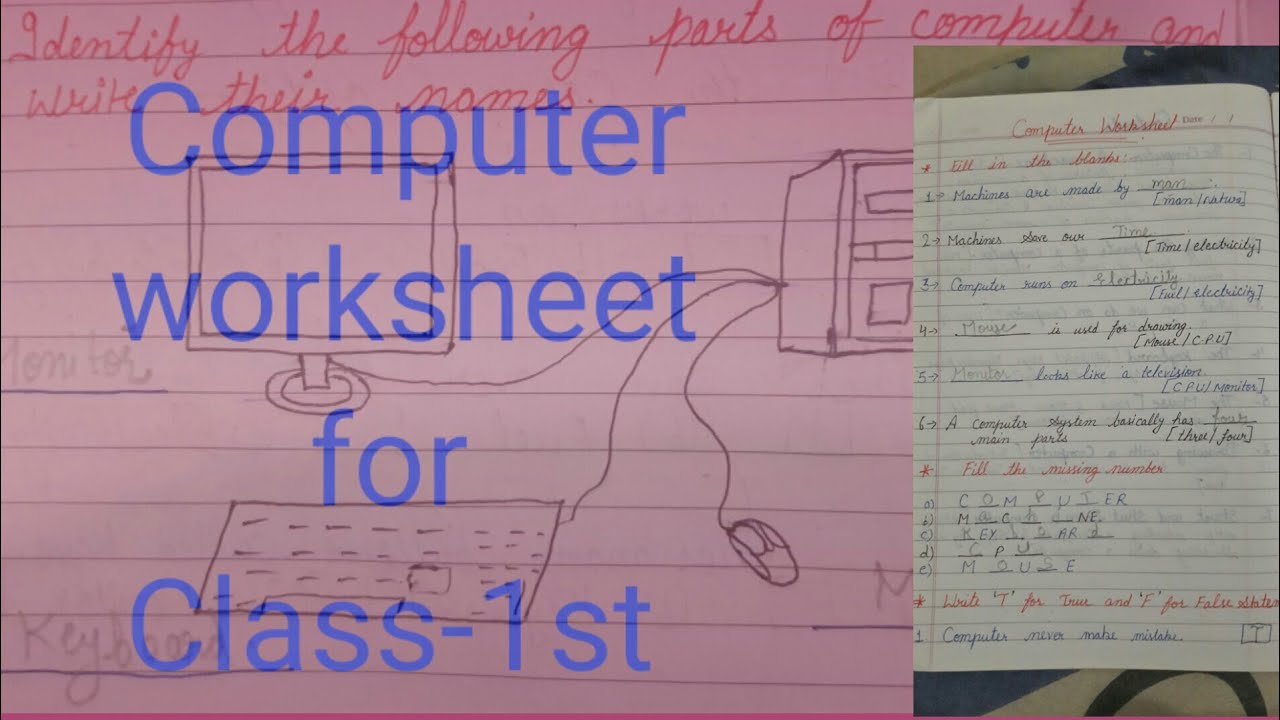 Identify the following parts of computer and
write their names.
Computer
worksheet
for
Class-1st
Monitor
Keyboard
M
Computer Worksheet
Date / /
* Fill in the blanks:
1→ Machines are made by man.
[man/nature]
2→ Machines save our Time.
[Time/electricity]
3→ Computer runs on electricity
[Fuel/electricity]
4→ Mouse is used for drawing.
[Mouse/C.P.U]
5→ Monitor looks like a television.
[C.P.U/Monitor]
6→ A computer system basically has four
main parts [three/four]
* Fill the missing number
a) C O M P U T ER
b) M a C h NE
c) K EY AR d
d) C P U
e) M O U S E
* Write 'T' for True and 'F' for False state
1. Computer never make mistake. T